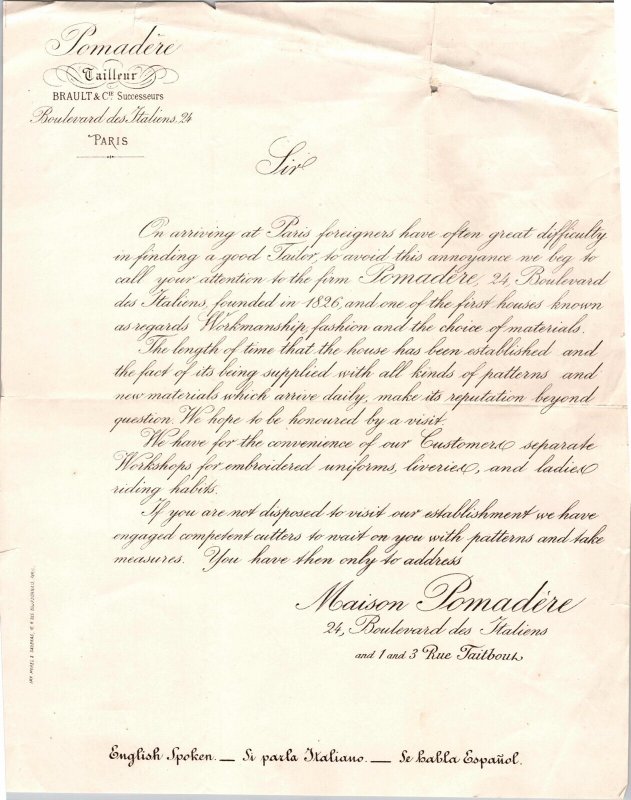 Pomadère
Tailleur
BRAULT & Cie Successeurs
Boulevard des Italiens, 24
PARIS
Sir
On arriving at Paris foreigners have often great difficulty
in finding a good Tailor, to avoid this annoyance we beg to
call your attention to the firm Pomadère, 24, Boulevard
des Italiens, founded in 1826, and one of the first houses known
as regards Workmanship, fashion and the choice of materials.
The length of time that the house has been established and
the fact of its being supplied with all kinds of patterns and
new materials which arrive daily, make its reputation beyond
question. We hope to be honoured by a visit.
We have for the convenience of our Customers separate
Workshops for embroidered uniforms, liveries, and ladies
riding habits.
If you are not disposed to visit our establishment we have
engaged competent cutters to wait on you with patterns and take
measures. You have then only to address
Maison Pomadère
24, Boulevard des Italiens
and 1 and 3 Rue Taitbout
English Spoken. — Si parla Italiano. — Se habla Español.